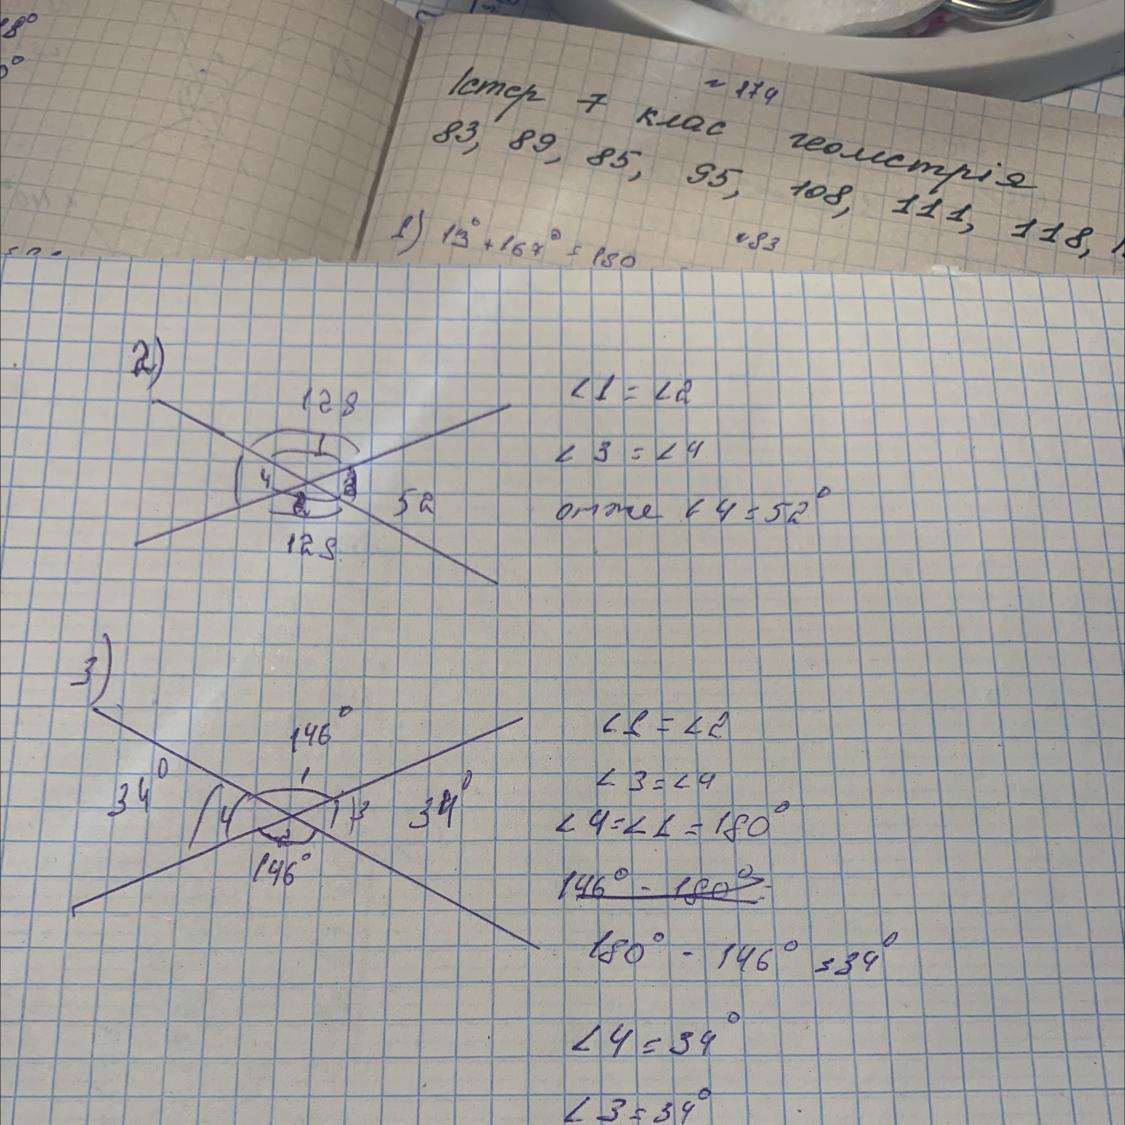 18°
№ 174
Істер 7 клас геометрія
83, 89, 85, 95, 108, 111, 118,
1) 13° + 167° = 180
№83
2)
128
1
4
2
52
128
∠1 = ∠2
∠3 = ∠4
отже ∠4 = 52°
3)
146°
1
34°
4
3
34°
2
146°
∠1 = ∠2
∠3 = ∠4
∠4 = ∠1 = 180°
146° - 180° =
180° - 146° = 34°
∠4 = 34°
∠3 = 34°